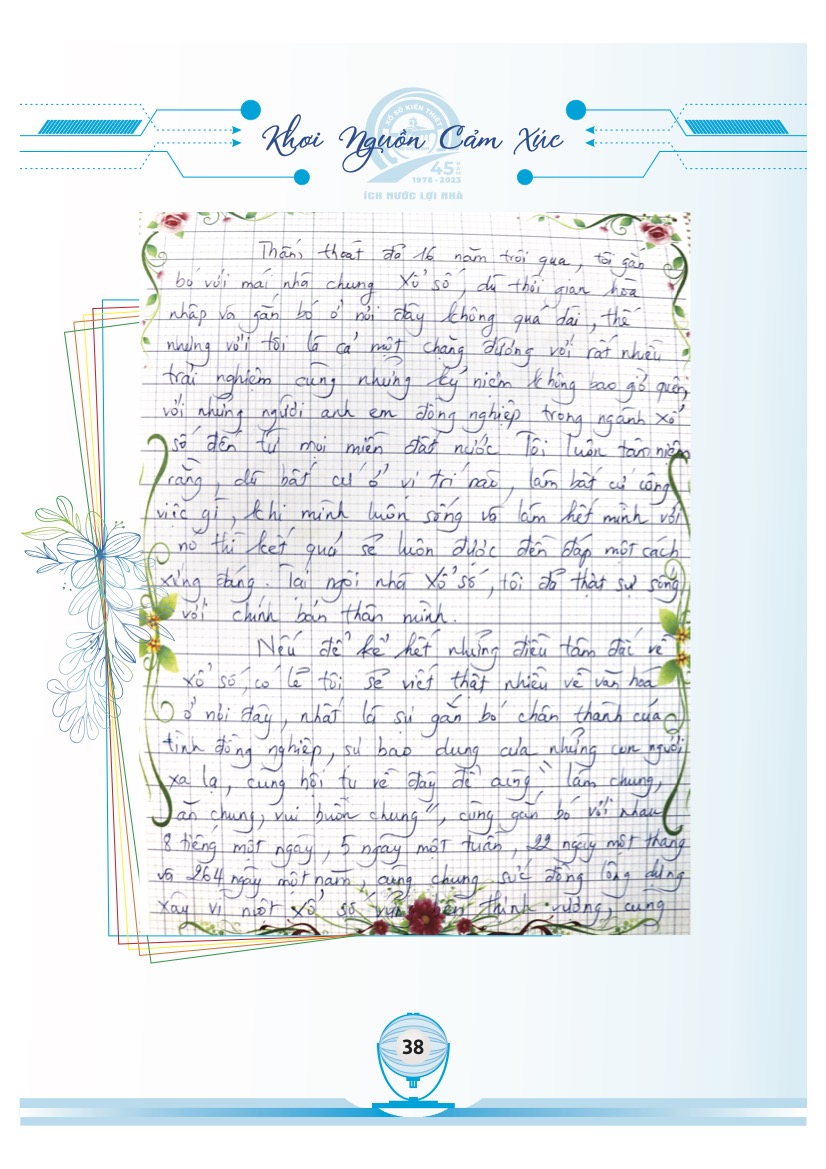 XỔ SỐ KIẾN THIẾT
Khơi Nguồn Cảm Xúc
45 NĂM
1978 - 2023
ÍCH NƯỚC LỢI NHÀ
Thấm thoát đã 16 năm trôi qua, tôi gắn
bó với mái nhà chung Xổ số, dù thời gian hòa
nhập và gắn bó ở nơi đây không quá dài, thế
nhưng với tôi là cả một chặng đường với rất nhiều
trải nghiệm cùng những kỷ niệm không bao giờ quên,
với những người anh em đồng nghiệp trong ngành xổ
số đến từ mọi miền đất nước. Tôi luôn tâm niệm
rằng, dù bất cứ ở vị trí nào, làm bất cứ công
việc gì, khi mình luôn sống và làm hết mình với
nó thì kết quả sẽ luôn được đền đáp một cách
xứng đáng. Tại ngôi nhà Xổ số, tôi đã thật sự sống
với chính bản thân mình.
Nếu để kể hết những điều tâm đắc về
xổ số, có lẽ tôi sẽ viết thật nhiều về văn hóa
ở nơi đây, nhất là sự gắn bó chân thành của
tình đồng nghiệp, sự bao dung của những con người
xa lạ, cùng hội tụ về đây để cùng "làm chung,
ăn chung, vui buồn chung", cùng gắn bó với nhau
8 tiếng một ngày, 5 ngày một tuần, 22 ngày một tháng
và 264 ngày một năm, cùng chung sức đồng lòng dựng
xây vì một Xổ số thịnh vượng, cùng
38